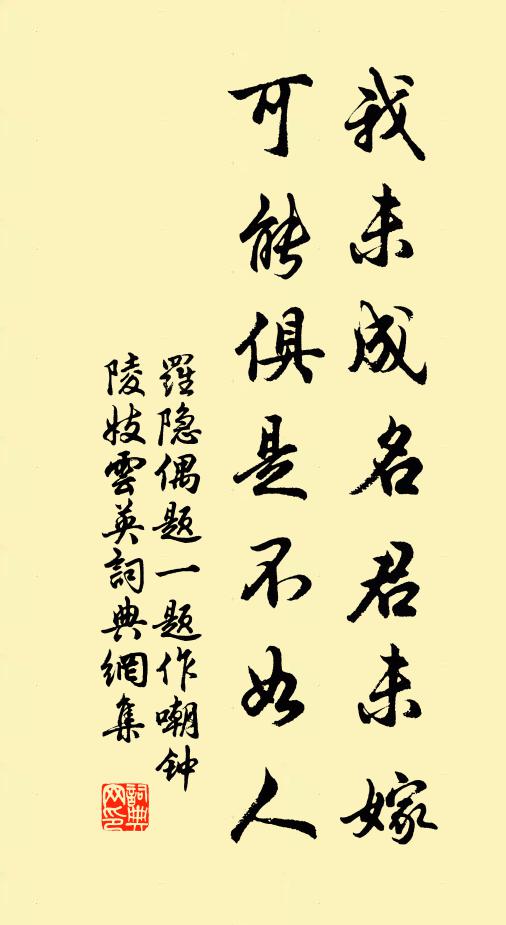 我未成名君未嫁
可能俱是不如人
羅隐偶题一题作嘲钟
陵妓雲英詞典網集
詞典网印